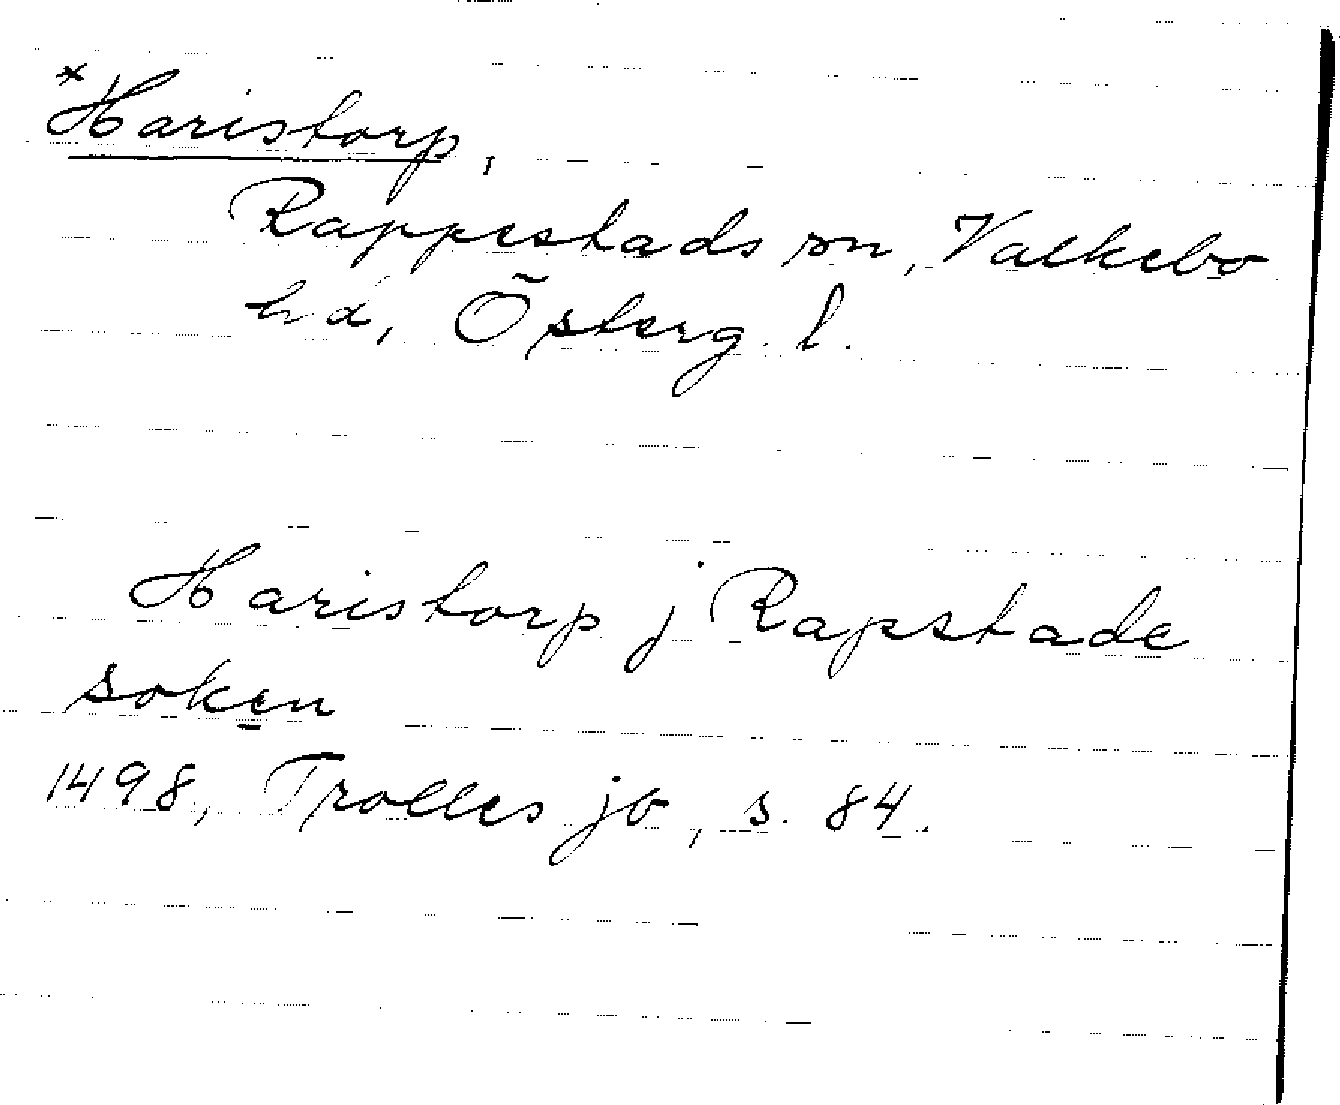 *Haristorp,
Rappestads sn, Valkebo
hd, Österg. l.
Haristorp j Rapstade
soken
1498, Trolles jb, s. 84.